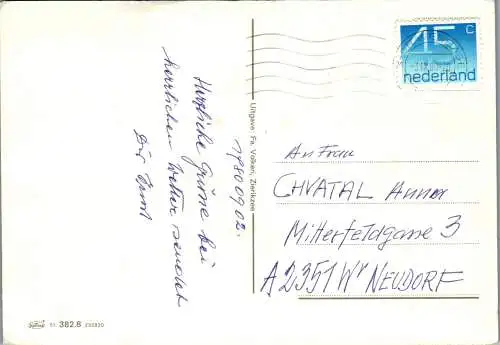 198009 02.
Herzliche Grüsse bei
herrlichem Wetter sendet
Dir Ernst
Uitgave: Fa. Valken, Zierikzee
51 382.8 232820
45 C
nederland
An Frau
CHVATAL Anna
Mitterfeldgasse 3
A 2351 Wr NEUDORF